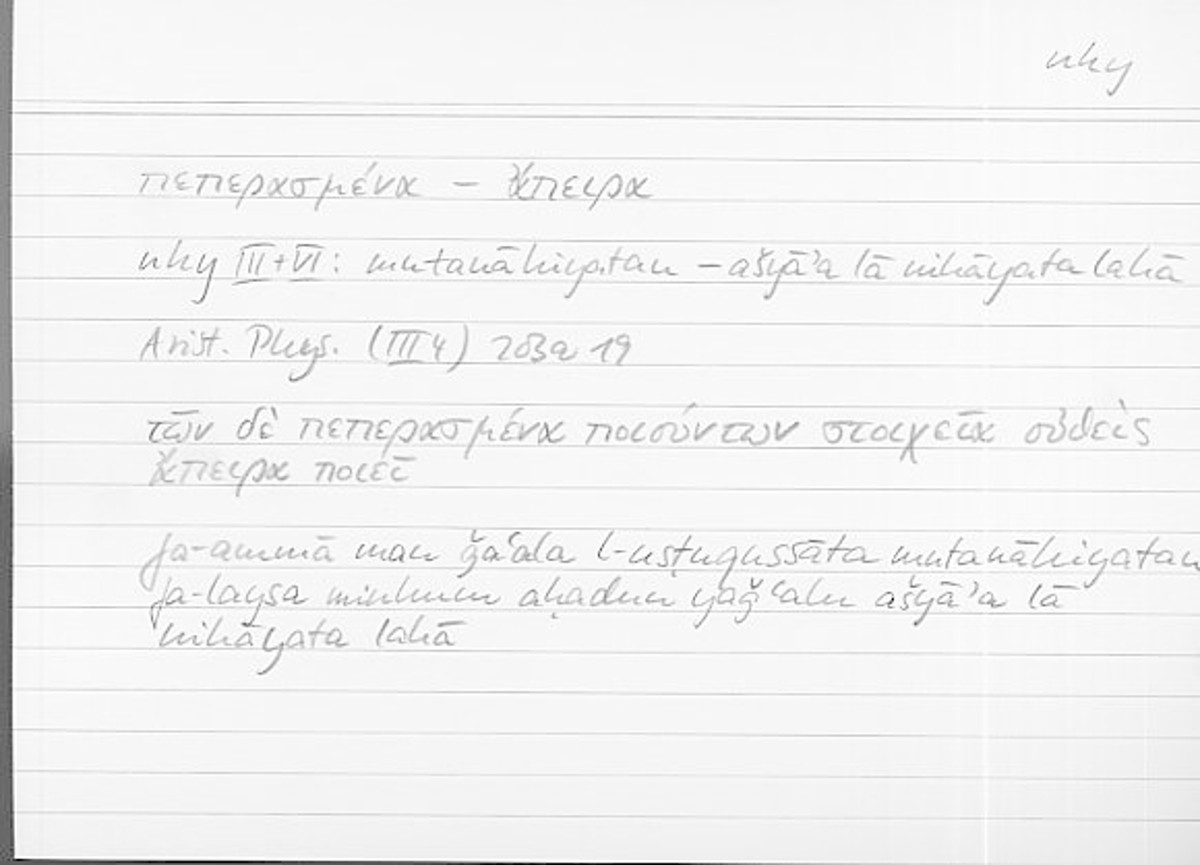 nhy
πεπερασμένα – ἄπειρα
nhy III+VI: mutanāhiyatan – ašyāʾa lā nihāyata lahā
Arist. Phys. (III 4) 203a 19
τῶν δὲ πεπερασμένα ποιούντων στοιχεῖα οὐθεὶς
ἄπειρα ποιεῖ
fa-ammā man ǧaʿala l-usṭuqussāta mutanāhiyatan
fa-laysa minhum aḥadun yaǧʿalu ašyāʾa lā
nihāyata lahā